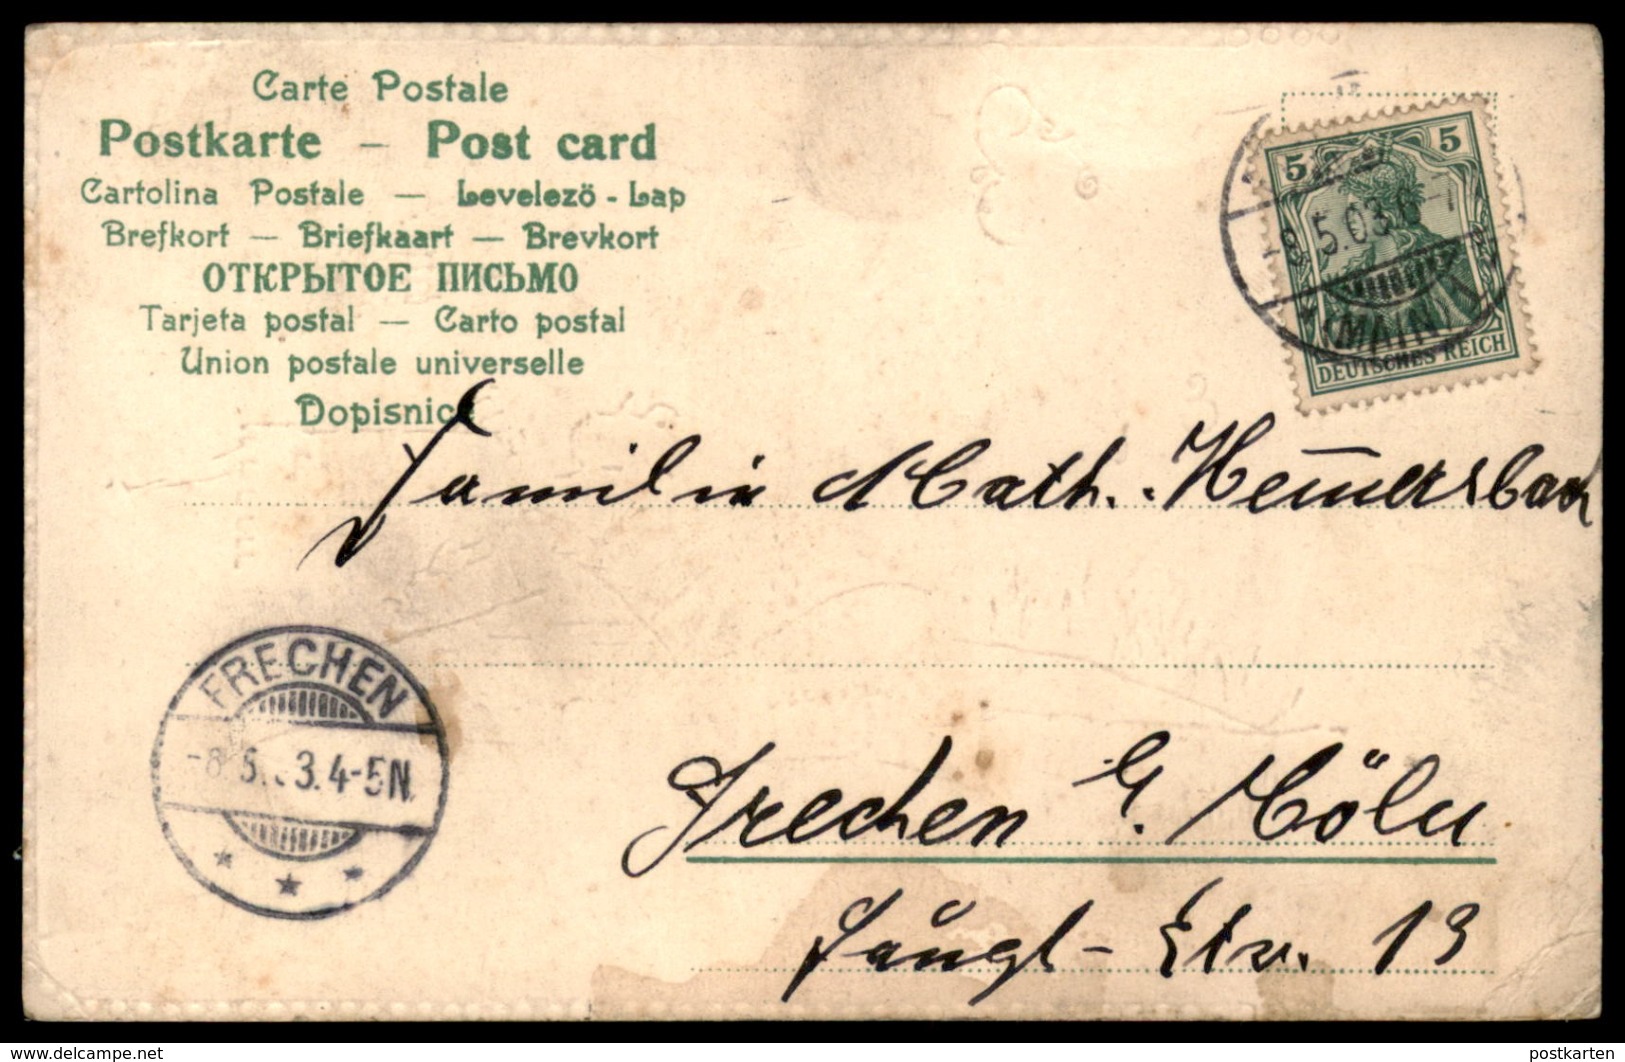 Carte Postale
Postkarte – Post card
Cartolina Postale — Levelező - Lap
Brefkort — Briefkaart — Brevkort
ОТКРЫТОЕ ПИСЬМО
Tarjeta postal — Carto postal
Union postale universelle
Dopisnice
5 5
-8.5.03.6-7
(MAIN)
DEUTSCHES REICH
Familie Math. Hemmersbach
FRECHEN
-8.5. 3.4-5N.
Frechen b. Cöln
Str. 13
delcampe.net
postkarten